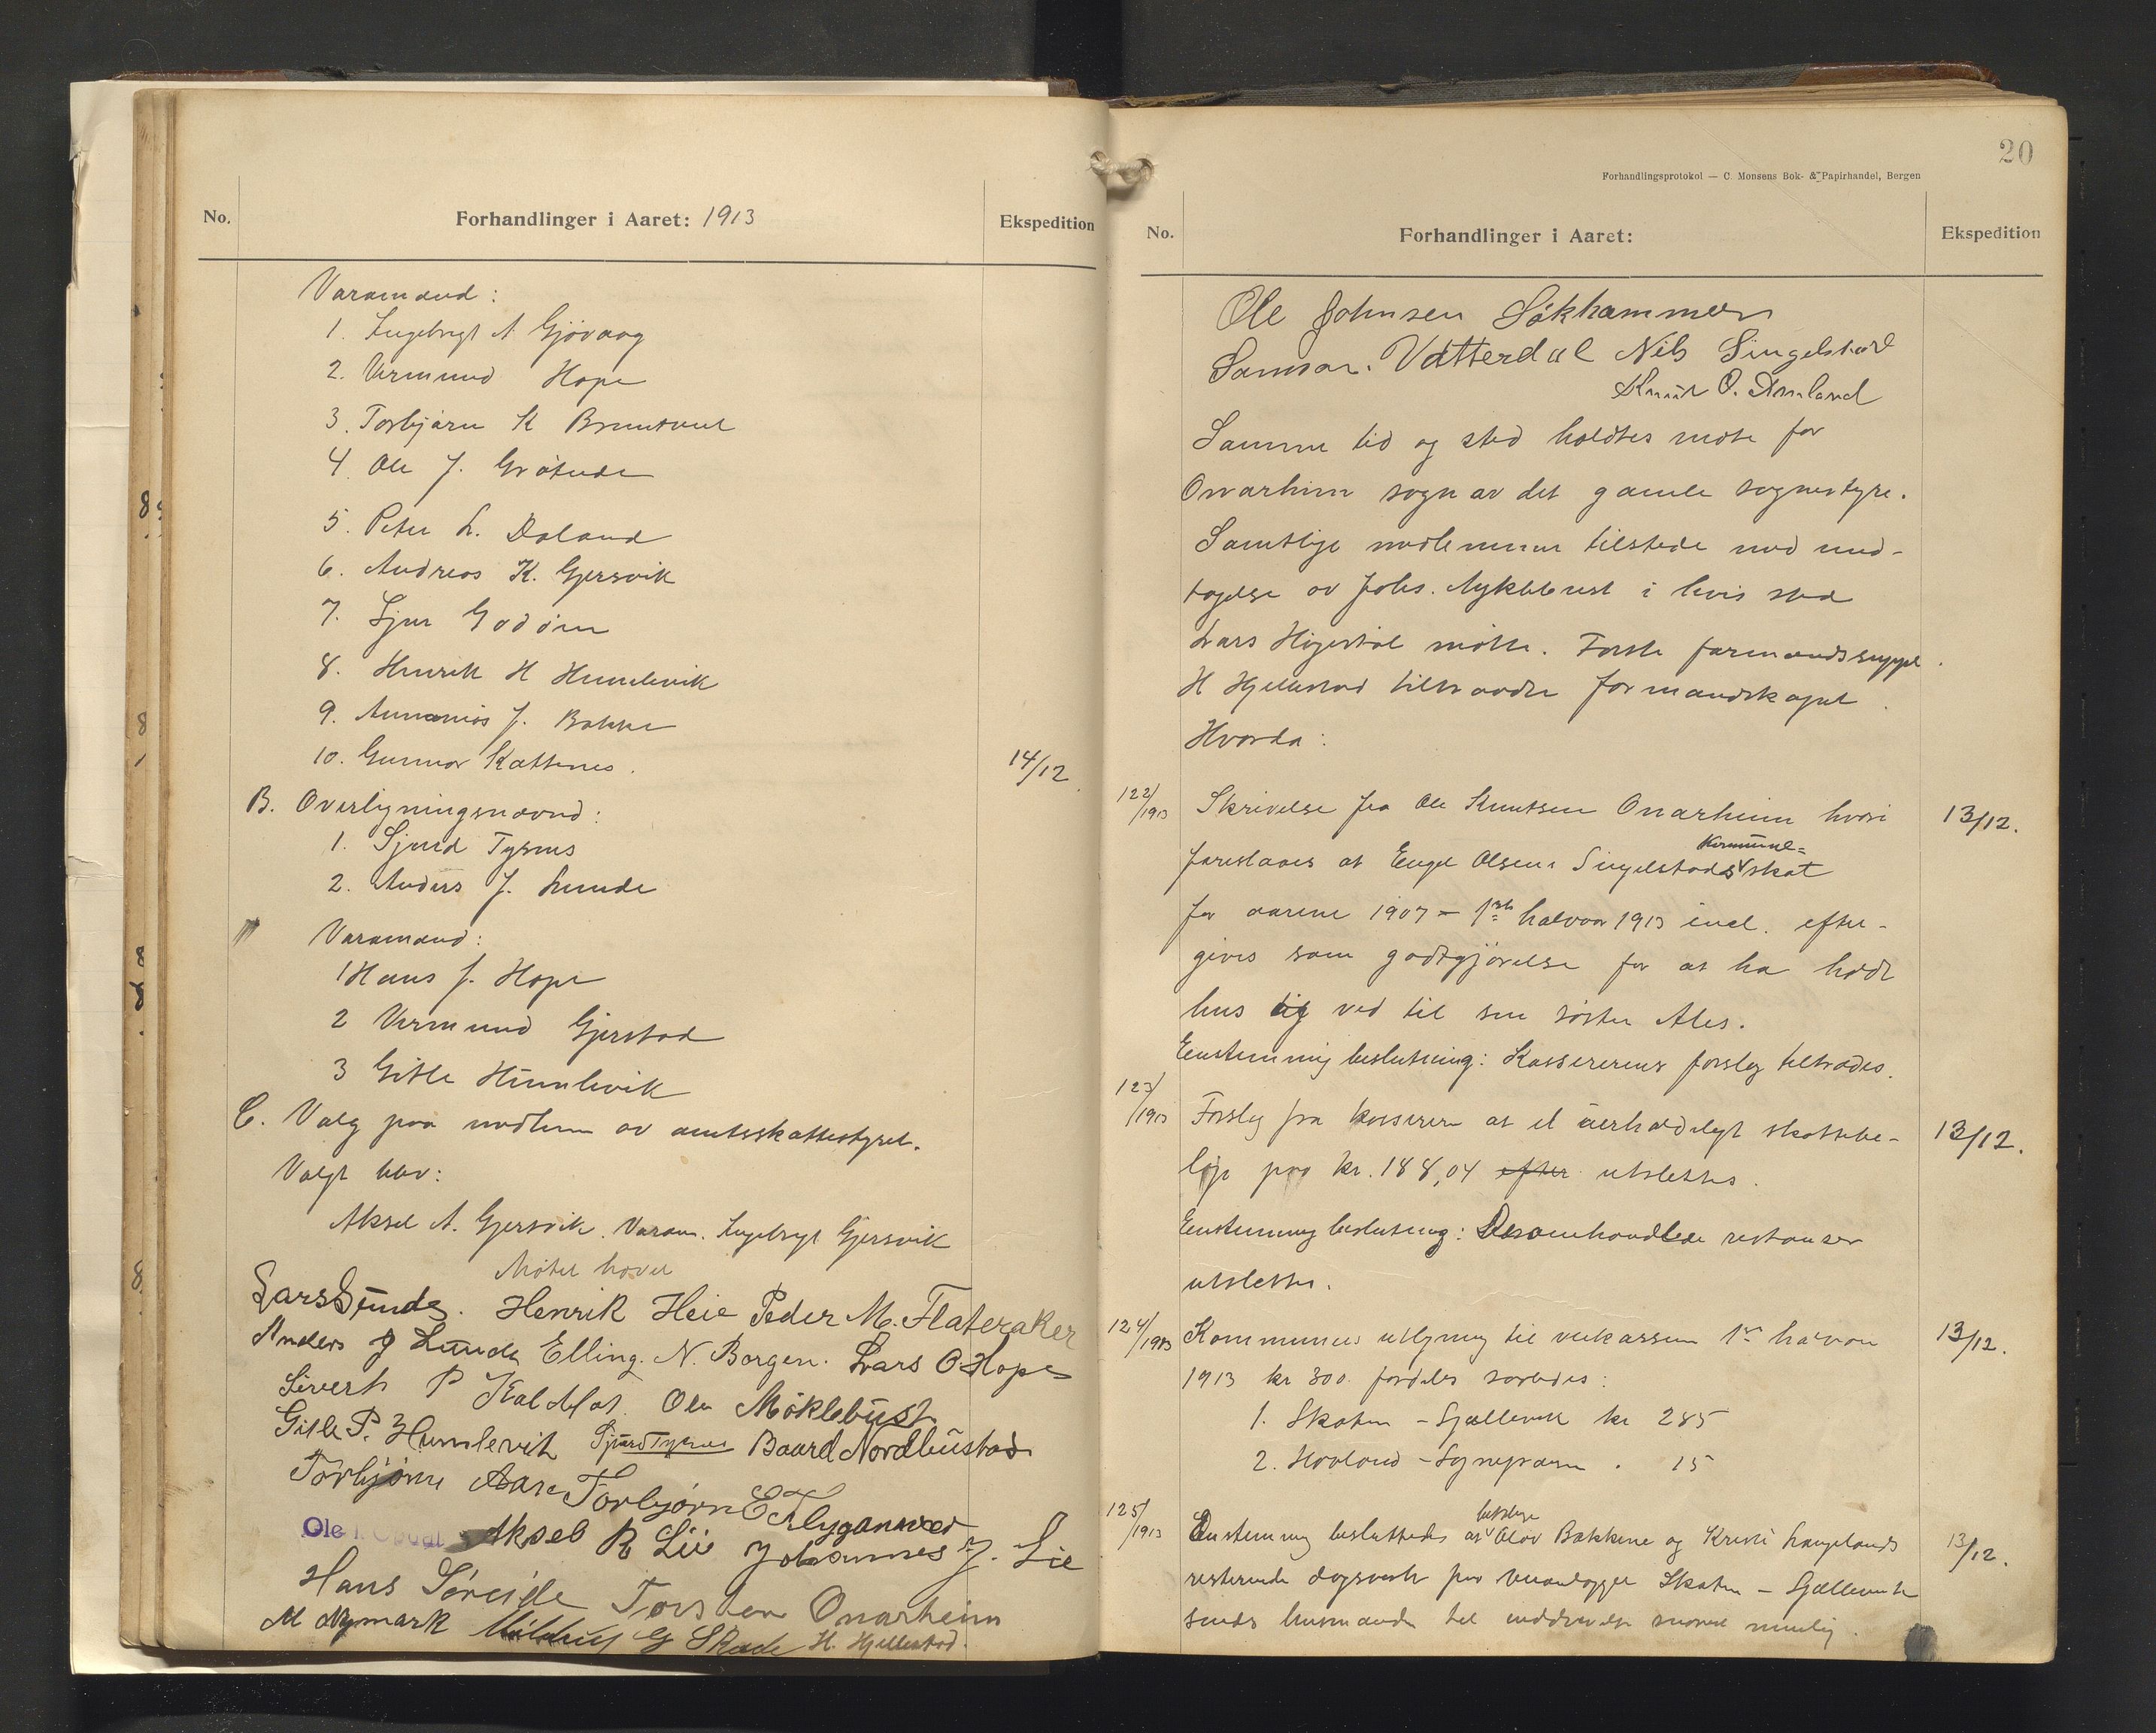 No.
Forhandlinger i Aaret: 1913
Ekspedition
Varamænd:
1. Ingebrigt A Gjøvaag
2. Vermund Hope
3. Torbjørn K Bruntveit
4. Ole J. Grøtude
5. Peter L. Døland
6. Andreas K. Gjersvik
7. Sjur Godøen
8. Henrik H Humlevik
9. Annanias J. Bakke
10. Gunnar Kattenes.
14/12
B. Overligningsnævnd:
1. Sjurd Tysnes
2. Anders J. Lunde
Varamænd:
1 Hans J. Hope
2 Vermund Gjerstad
3 Gitle Humlevik
C. Valg paa medlem av amtsskattestyret.
Valgt blev:
Aksel A. Gjersvik. Varam. Ingebrigt Gjersvik
Møtet hævet
Lars Sunde. Henrik Heie Peder M. Flateraker
Anders J Lunde Elling N. Borgen. Lars O Hope
Sivert P Ole Møklebust.
Gitle P. Humlevik Sjurd Tysnes Baard Nordbustad
Torbjørn Aase Torbjørn E Flyganvær
Ole Aksel R Lie Johannes J. Lie
Hans Søreide Torsten Onarheim
M Nymark G Skade H. Hjellestad.
20
Forhandlingsprotokol — C. Monsens Bok- & Papirhandel, Bergen
No.
Forhandlinger i Aaret:
Ekspedition
Ole Johnsen Søkhammeren
Samson. Vatterdal Nils Singelstad
Knut O. Amland
Samme tid og sted holdtes møte for
Onarheim sogn av det gamle sognestyre.
Samtlige medlemmer tilstede med und-
tagelse av Johs. Myklebust i hvis sted
Lars Høgestøl møtte. Første formandssuppl.
H Hjellestad tiltraadte formandskapet.
Hvorda:
122/1913 Skrivelse fra Ole Knutsen Onarheim hvori 13/12.
kommune=
foreslaaes at Engel Olsens Singelstads skat
for aarene 1907 – 1ste halvaar 1913 incl. efter-
gives som godtgjørelse for at ha holdt
hus og ved til sin søster Ales.
Enstemmig beslutning: Kassererens forslag tiltrædes.
123/1913 Forslag fra kasserer at et uerholdeligt skattebe- 13/12.
løp paa kr. 188,04 efter utslettes.
Enstemmig beslutning: Desomhandlede restanser
utslettes.
124/1913 Kommunens utligning til veikassen 1ste halvaar 13/12.
1913 kr 300. fordeles saaledes:
1. Skaten – Sjællevik kr 285
2. Hovland – Sygneparm. 15
125/1913 Enstemmig besluttedes at Olav Bakkene og Kristi Haugelands 13/12.
resterende dagsverk paa veianlægget Skaten – Sjællevik
sendes lensmanden til inddrivelse snarest mulig.